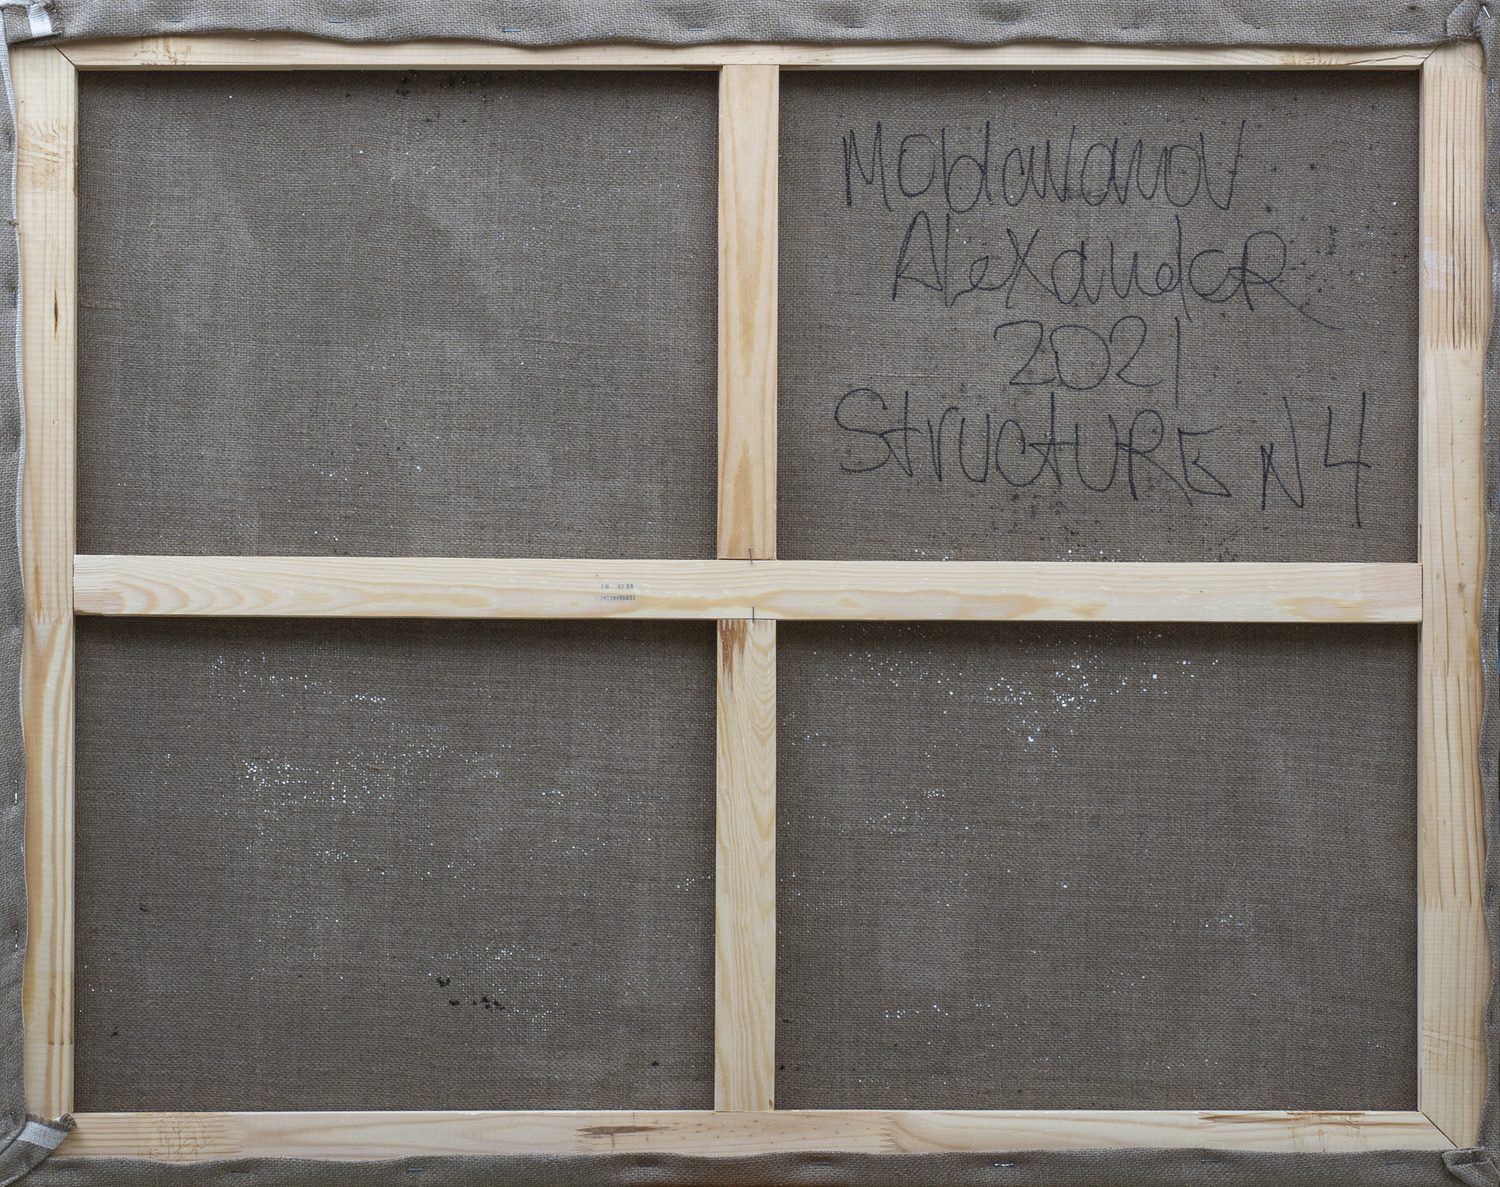 Moldavanov
AlexandeR
2021
StructURE N4